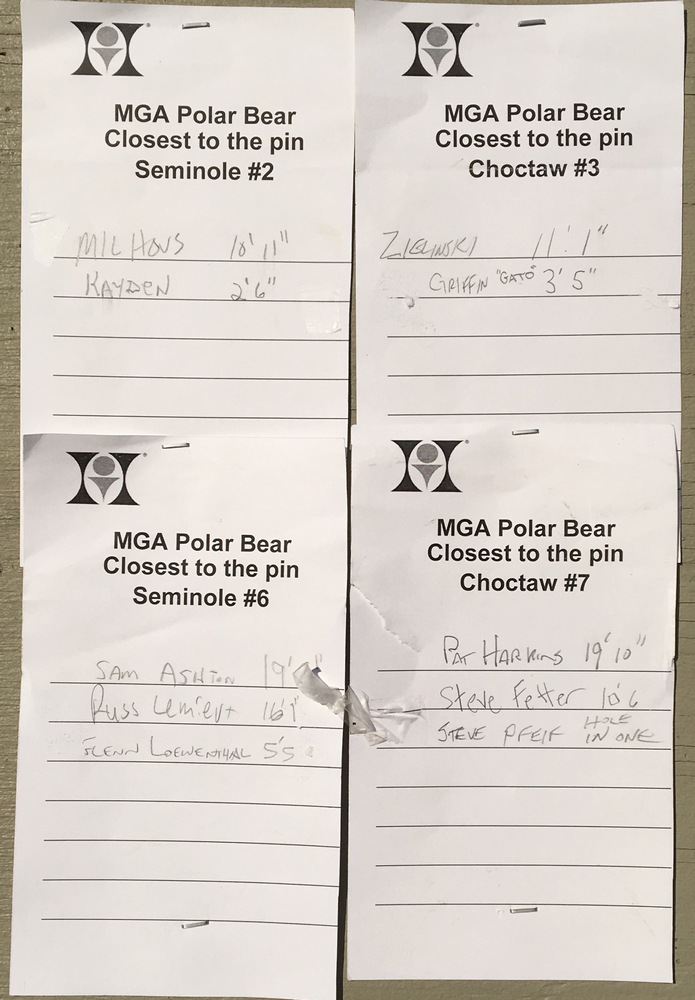 MGA Polar Bear
Closest to the pin
Seminole #2
MILHOUS 10' 11"
KAYDEN 2'6"
MGA Polar Bear
Closest to the pin
Choctaw #3
ZIELINSKI 11' 1"
GRIFFIN "GATO" 3' 5"
MGA Polar Bear
Closest to the pin
Seminole #6
SAM ASHTON 19'
Russ 16'1"
GLENN LOEWENTHAL 5'5
MGA Polar Bear
Closest to the pin
Choctaw #7
PAT HARKINS 19' 10"
Steve Fetter 10'6
STEVE PFEIF HOLE
IN ONE